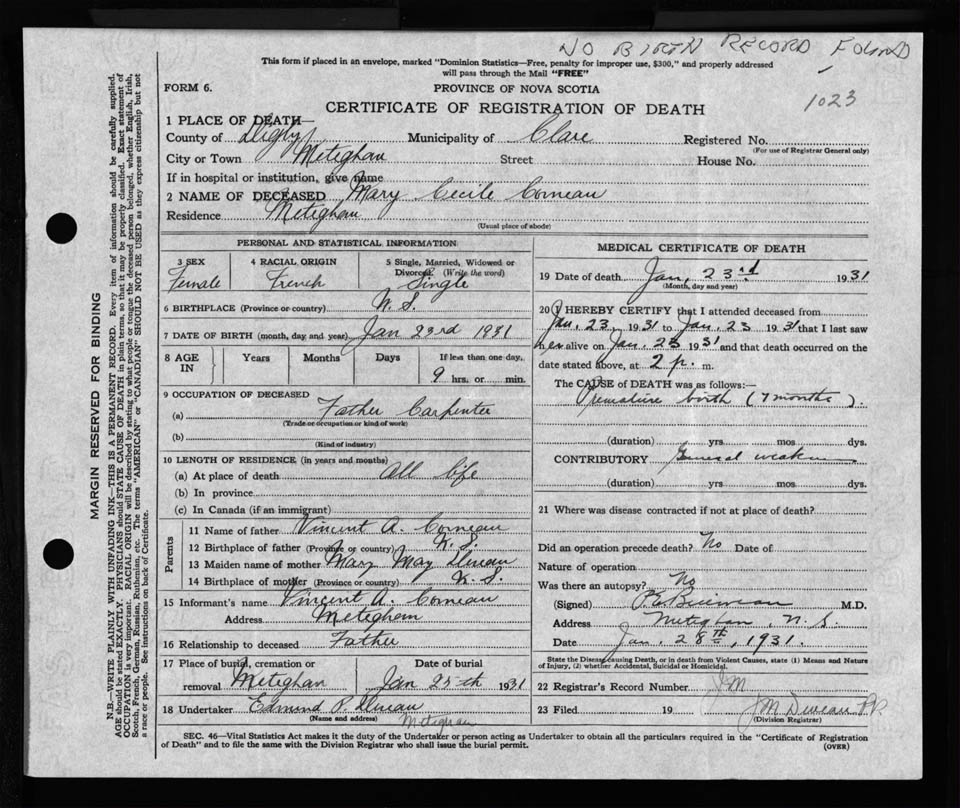 NO BIRTH RECORD FOUND
This form if placed in an envelope, marked "Dominion Statistics—Free, penalty for improper use, $300," and properly addressed
will pass through the Mail "FREE"
FORM 6.
PROVINCE OF NOVA SCOTIA
1023
CERTIFICATE OF REGISTRATION OF DEATH
1 PLACE OF DEATH—
County of Digby Municipality of Clare Registered No.
(For use of Registrar General only)
City or Town Meteghan Street House No.
If in hospital or institution, give name
2 NAME OF DECEASED Mary Cecile Comeau
Residence Meteghan
(Usual place of abode)
PERSONAL AND STATISTICAL INFORMATION
3 SEX 4 RACIAL ORIGIN 5 Single, Married, Widowed or
Divorced. (Write the word)
Female French Single
6 BIRTHPLACE (Province or country) N. S.
7 DATE OF BIRTH (month, day and year) Jan 23rd 1931
8 AGE IN Years Months Days If less than one day,
9 hrs. or min.
9 OCCUPATION OF DECEASED
(a) Father Carpenter
(Trade or occupation or kind of work)
(b)
(Kind of industry)
10 LENGTH OF RESIDENCE (in years and months)
(a) At place of death All life
(b) In province
(c) In Canada (if an immigrant)
Parents
11 Name of father Vincent A. Comeau
12 Birthplace of father (Province or country) N. S.
13 Maiden name of mother Mary May Deveau
14 Birthplace of mother (Province or country) N. S.
15 Informant's name Vincent A. Comeau
Address Meteghan
16 Relationship to deceased Father
17 Place of burial, cremation or Date of burial
removal Meteghan Jan 25th 1931
18 Undertaker Edmund P. Deveau
(Name and address) Meteghan
MEDICAL CERTIFICATE OF DEATH
19 Date of death Jan, 23rd 1931
(Month, day and year)
20 I HEREBY CERTIFY that I attended deceased from
Jan. 23 1931 to Jan. 23 1931 that I last saw
her alive on Jan. 23 1931 and that death occurred on the
date stated above, at 2 p. m.
The CAUSE of DEATH was as follows:—
Premature birth (7 months).
(duration) yrs. mos. dys.
CONTRIBUTORY General weakness
(duration) yrs. mos. dys.
21 Where was disease contracted if not at place of death?
Did an operation precede death? No Date of
Nature of operation
Was there an autopsy? No
(Signed) M.D.
Address Meteghan, N. S.
Date Jan. 28TH, 1931.
State the Disease causing Death, or in death from Violent Causes, state (1) Means and Nature
of Injury, (2) whether Accidental, Suicidal or Homicidal.
22 Registrar's Record Number
23 Filed 19 J M Deveau
(Division Registrar)
SEC. 46—Vital Statistics Act makes it the duty of the Undertaker or person acting as Undertaker to obtain all the particulars required in the "Certificate of Registration
of Death" and to file the same with the Division Registrar who shall issue the burial permit.
(OVER)
MARGIN RESERVED FOR BINDING
N.B.—WRITE PLAINLY WITH UNFADING INK—THIS IS A PERMANENT RECORD. Every item of information should be carefully supplied.
AGE should be stated EXACTLY. PHYSICIANS should STATE CAUSE OF DEATH in plain terms, so that it may be properly classified. Exact statement of
OCCUPATION is very important. RACIAL ORIGIN will be described by stating to what people or tongue the deceased person belonged, whether English, Irish,
Scotch, French, German, Russian, Ruthenian, etc. The terms "AMERICAN" or "CANADIAN" SHOULD NOT BE USED as they express citizenship but not
a race or people. See instructions on back of Certificate.